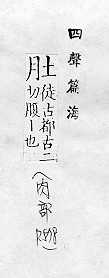 四聲篇海
肚徒古都古二
切腹丨也
(肉部